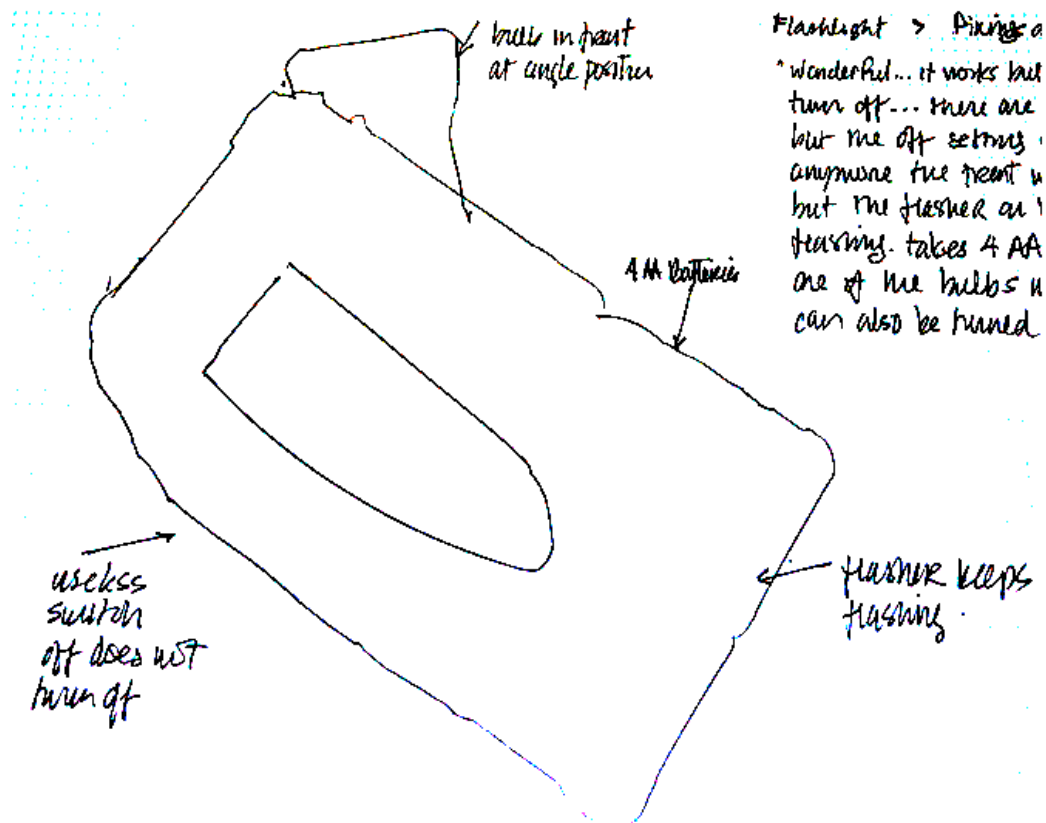 bulb in front
at angle position
Flashlight > Dixings a
"wonderful... it works but
turn off... there are
but the off settings
anymore the front w
but the flasher on
flashing. takes 4 AA
one of the bulbs w
can also be turned
4 AA Batteries
useless
switch
off does not
turn off
flasher keeps
flashing.